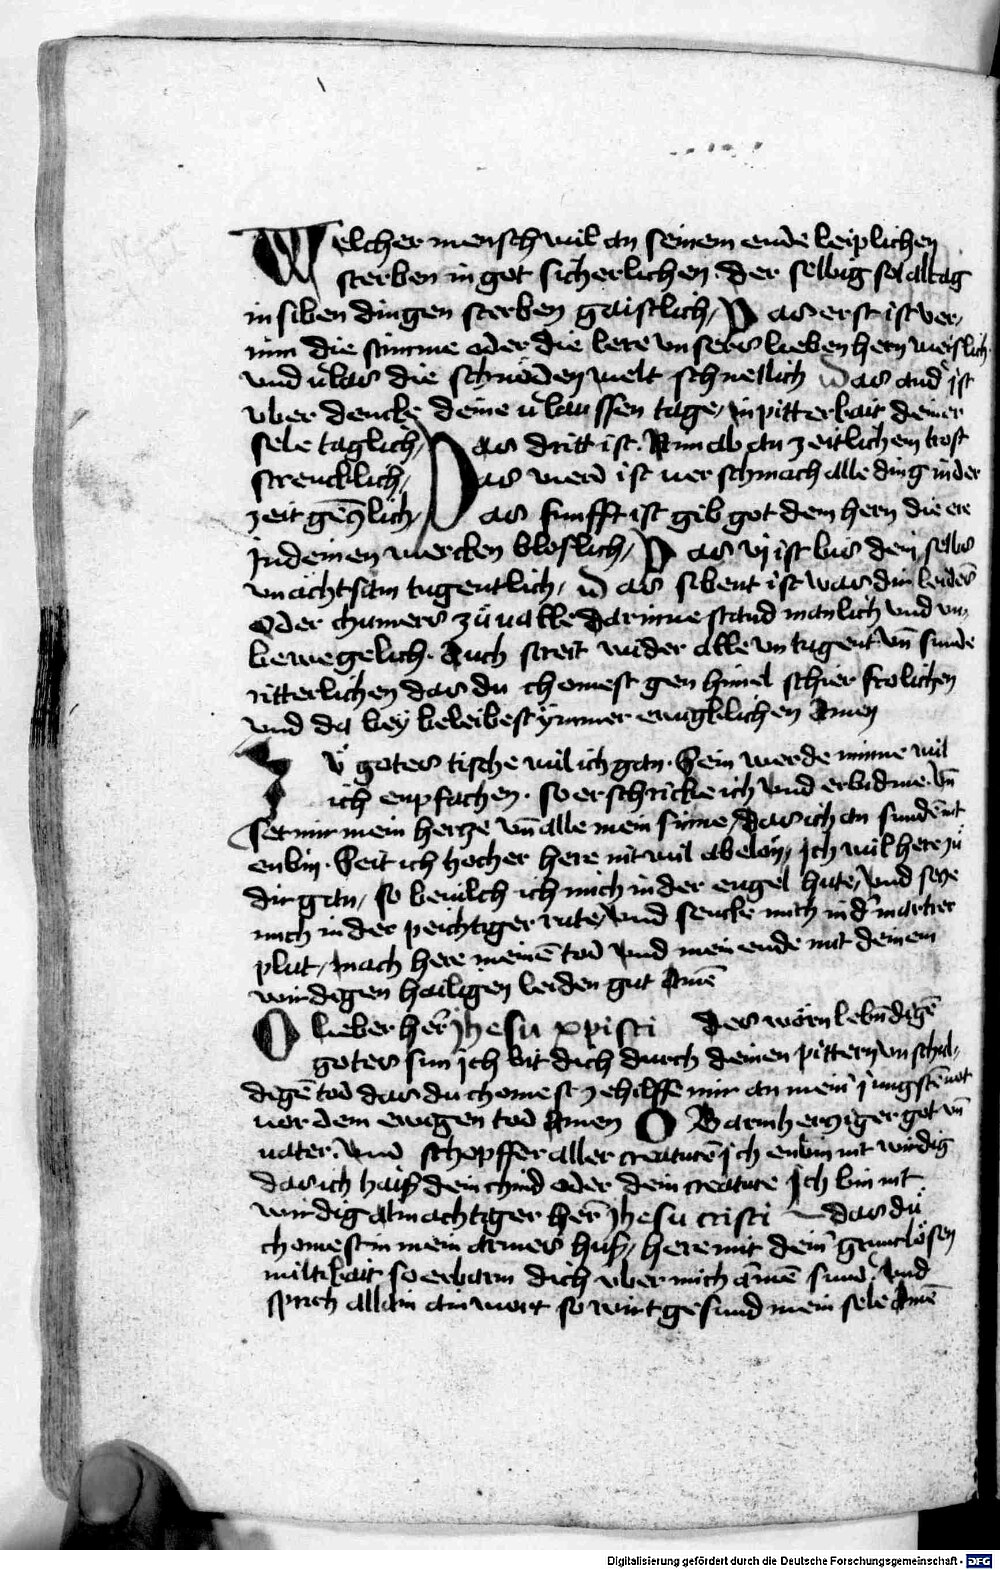 Welcher mensch wil an seinem ende leiplichen
sterben in got sicherlichen · der selbig sol alltag
in siben dingen sterben gaistlich / Das erst ist ver,
nim die stimme oder die lere vnsers lieben hern weislich
vnd vlas die schnöden welt schnellich Das and' ist
vber dencke deine v'lauffen tage / in pitterkait deiner
sele taglich / Das dritt ist · Nim ab an zeitlichem trost
strencklich / Das vierd ist uerschmach alle ding in der
zeit genczlich / Das funfft ist gib got dem hern die ere
In deinen wercken bloslich / Das vj ist bis dein selbs
vnachtsam tugentlich / Das sibent ist was dir leides
oder chumers zů ualle darinne stand manlich vnd vn,
bewegelich · Auch streit wider alle vntugent vn̄ sunde
ritterlichen das du chomest gen himel schier frolichen
vnd da bey beleibest ymmer ewigklichen Amen
Zů gotes tische wil ich gan · Sein werde minne wil
ich enpfachen · so erschricke ich vnd erbidme · vn̄
set mir mein hertze vn̄ alle mein sinne / das ich an sunde nit
enbin · Seit ich hocher here nit wil abelan / Ich wil here zů
dir gan / so beuilch ich mich in der engel hute / vnd seze
mich in der peichtiger rate / vnd sencke mich in d' martrer
plut / mach here meinē tod vnd mein ende mit deinem
wirdigen hailigen leiden gut Amē
O lieber her̄ Jhesu xpisti des worn lebn̄digē
gotes sun ich bit dich durch deinen pittern vnschul,
digē tod das du chomest ze hilffe mir an mein' jungstē not
uor dem ewigen tod Amen O Barmherziger got vn̄
uater · vnd schopffer aller creaturē ich enbin nit wirdig
das ich haiß dein chind oder dein creature Ich bin nit
wirdig almachtiger her̄ Jhesu cristi das du
chomest in mein armes huß / here mit dein' gruntlosen
miltikait so erbarm dich vber mich armē sund' vnd
sprich allain ain wort so wirt gesund mein sele Amē
Digitalisierung gefördert durch die Deutsche Forschungsgemeinschaft - DFG